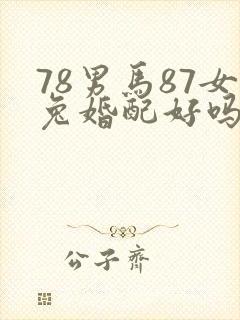 78男馬87女
兔婚配好吗
公子齊